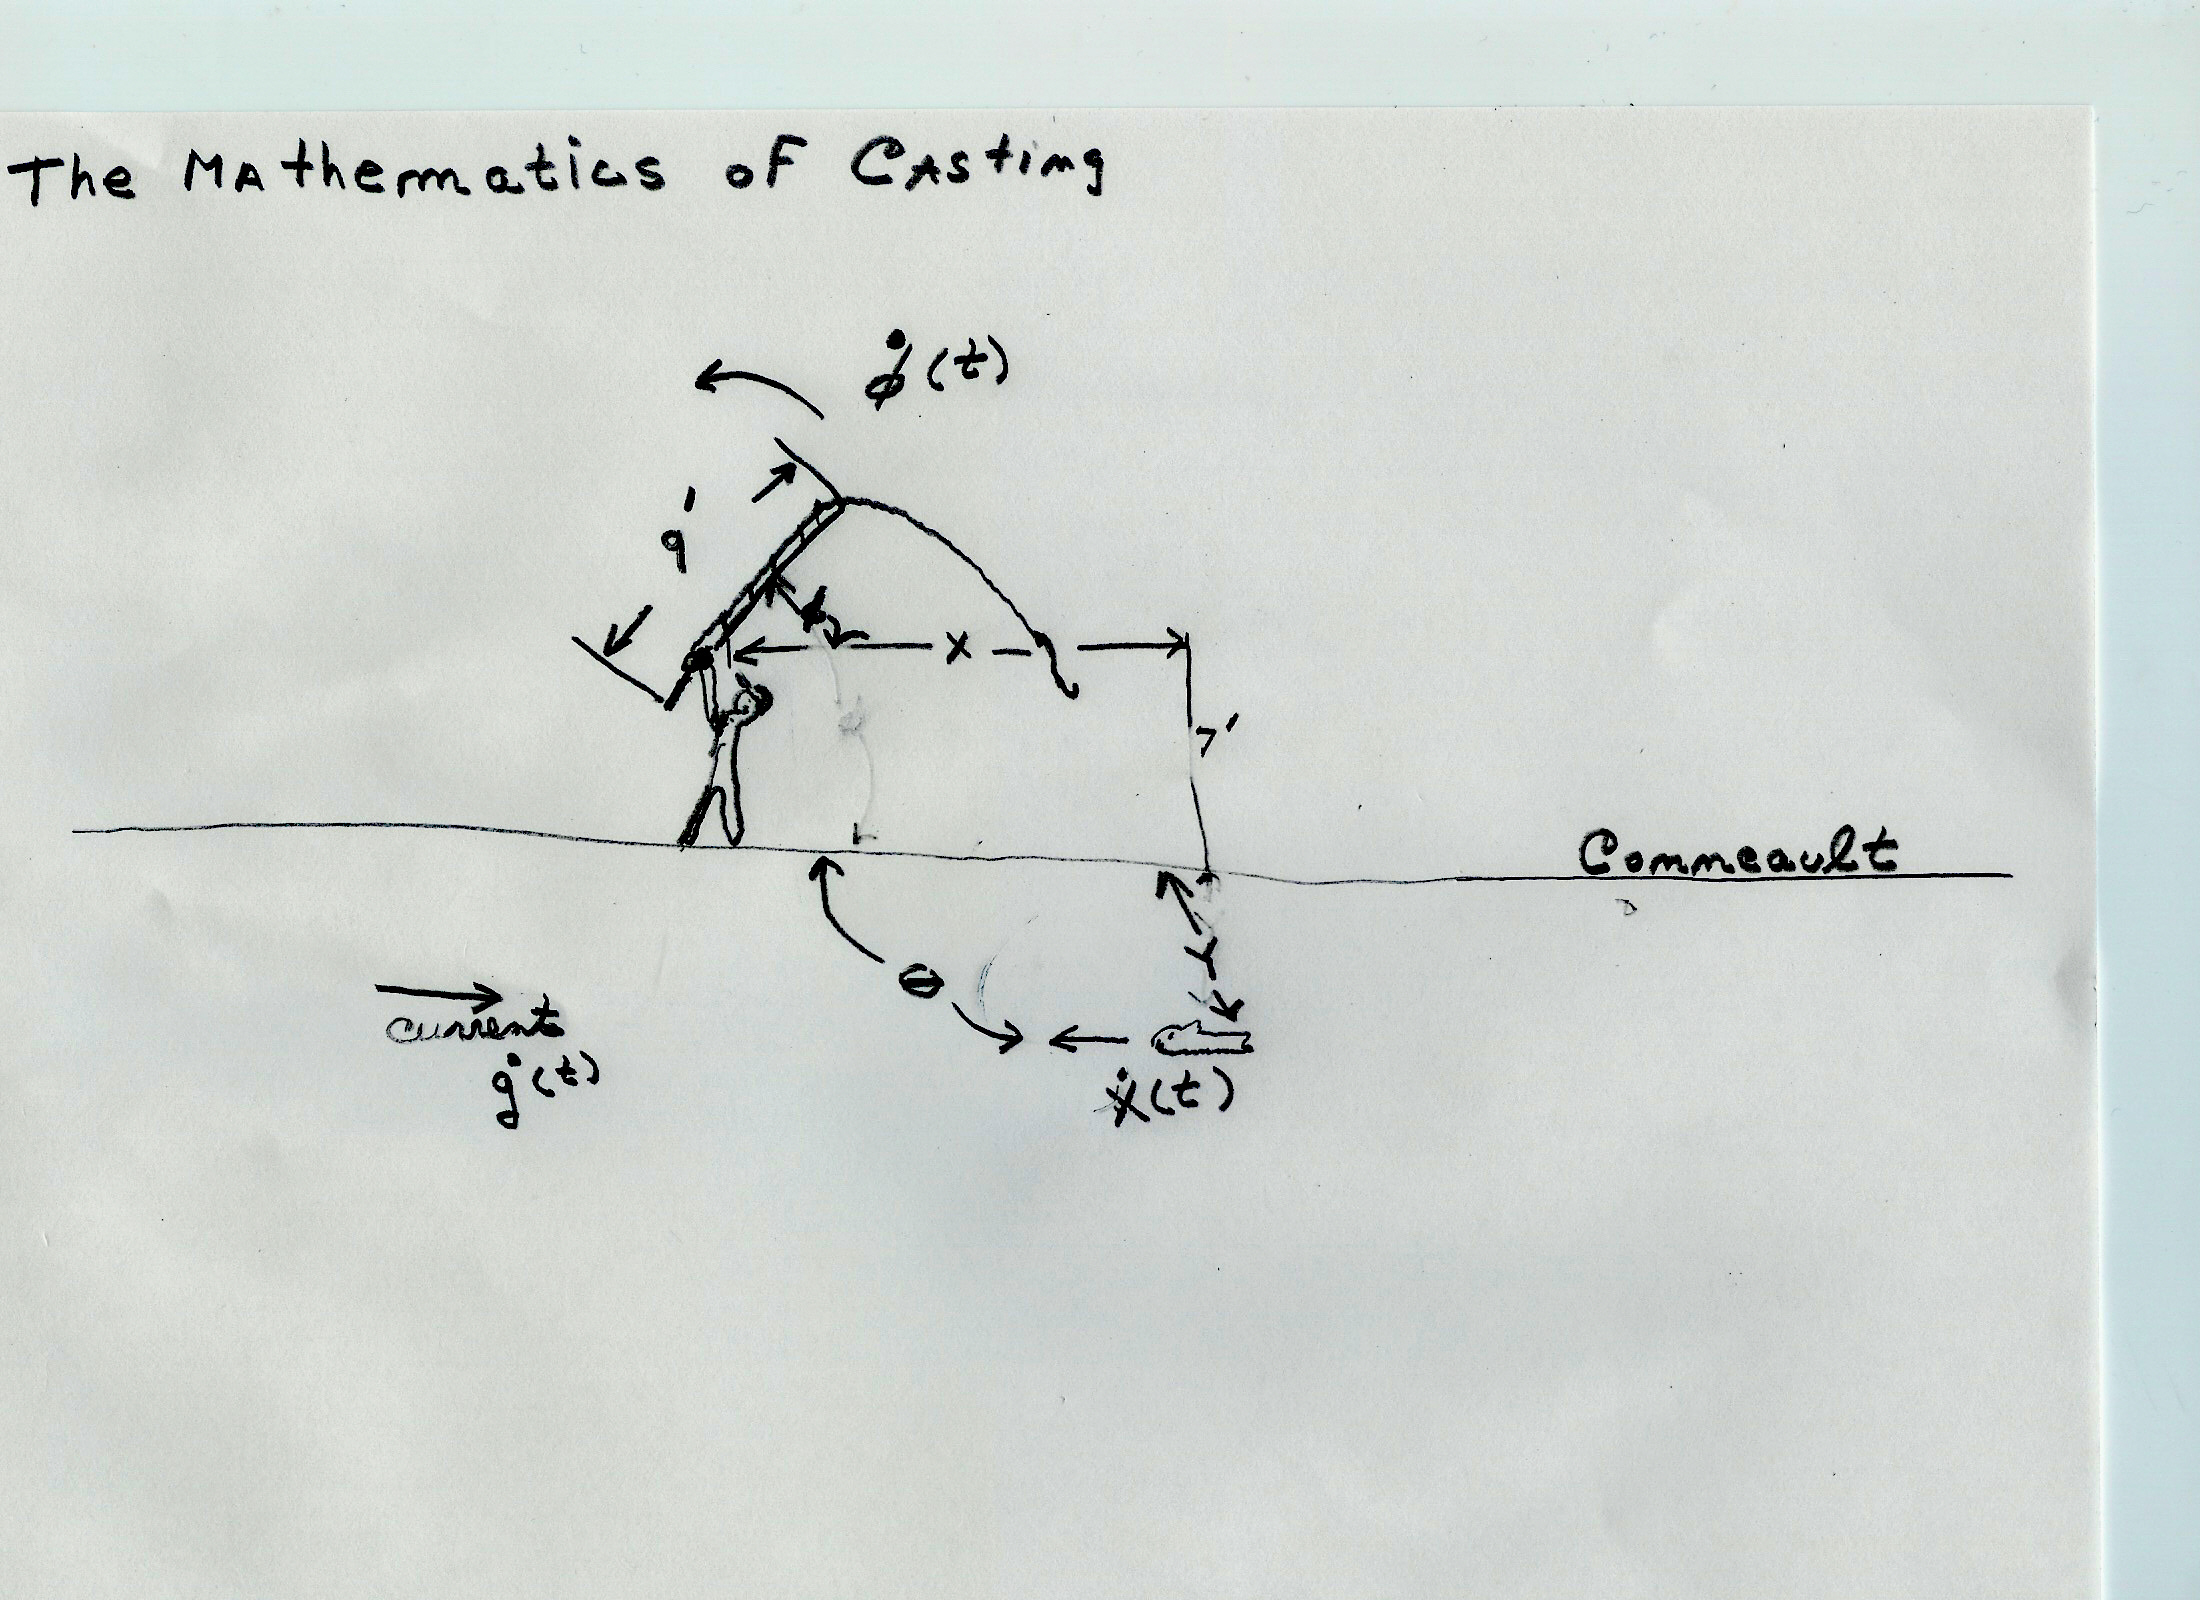 The Mathematics of Casting
φ̇(t)
9'
φ
X
7'
Conneault
Y
θ
current
ġ(t)
ẋ(t)